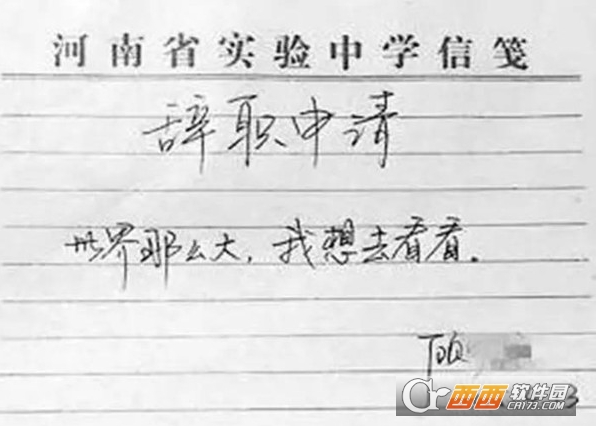 河南省实验中学信笺
辞职申请
世界那么大，我想去看看。
西西软件园
CR173.COM
3